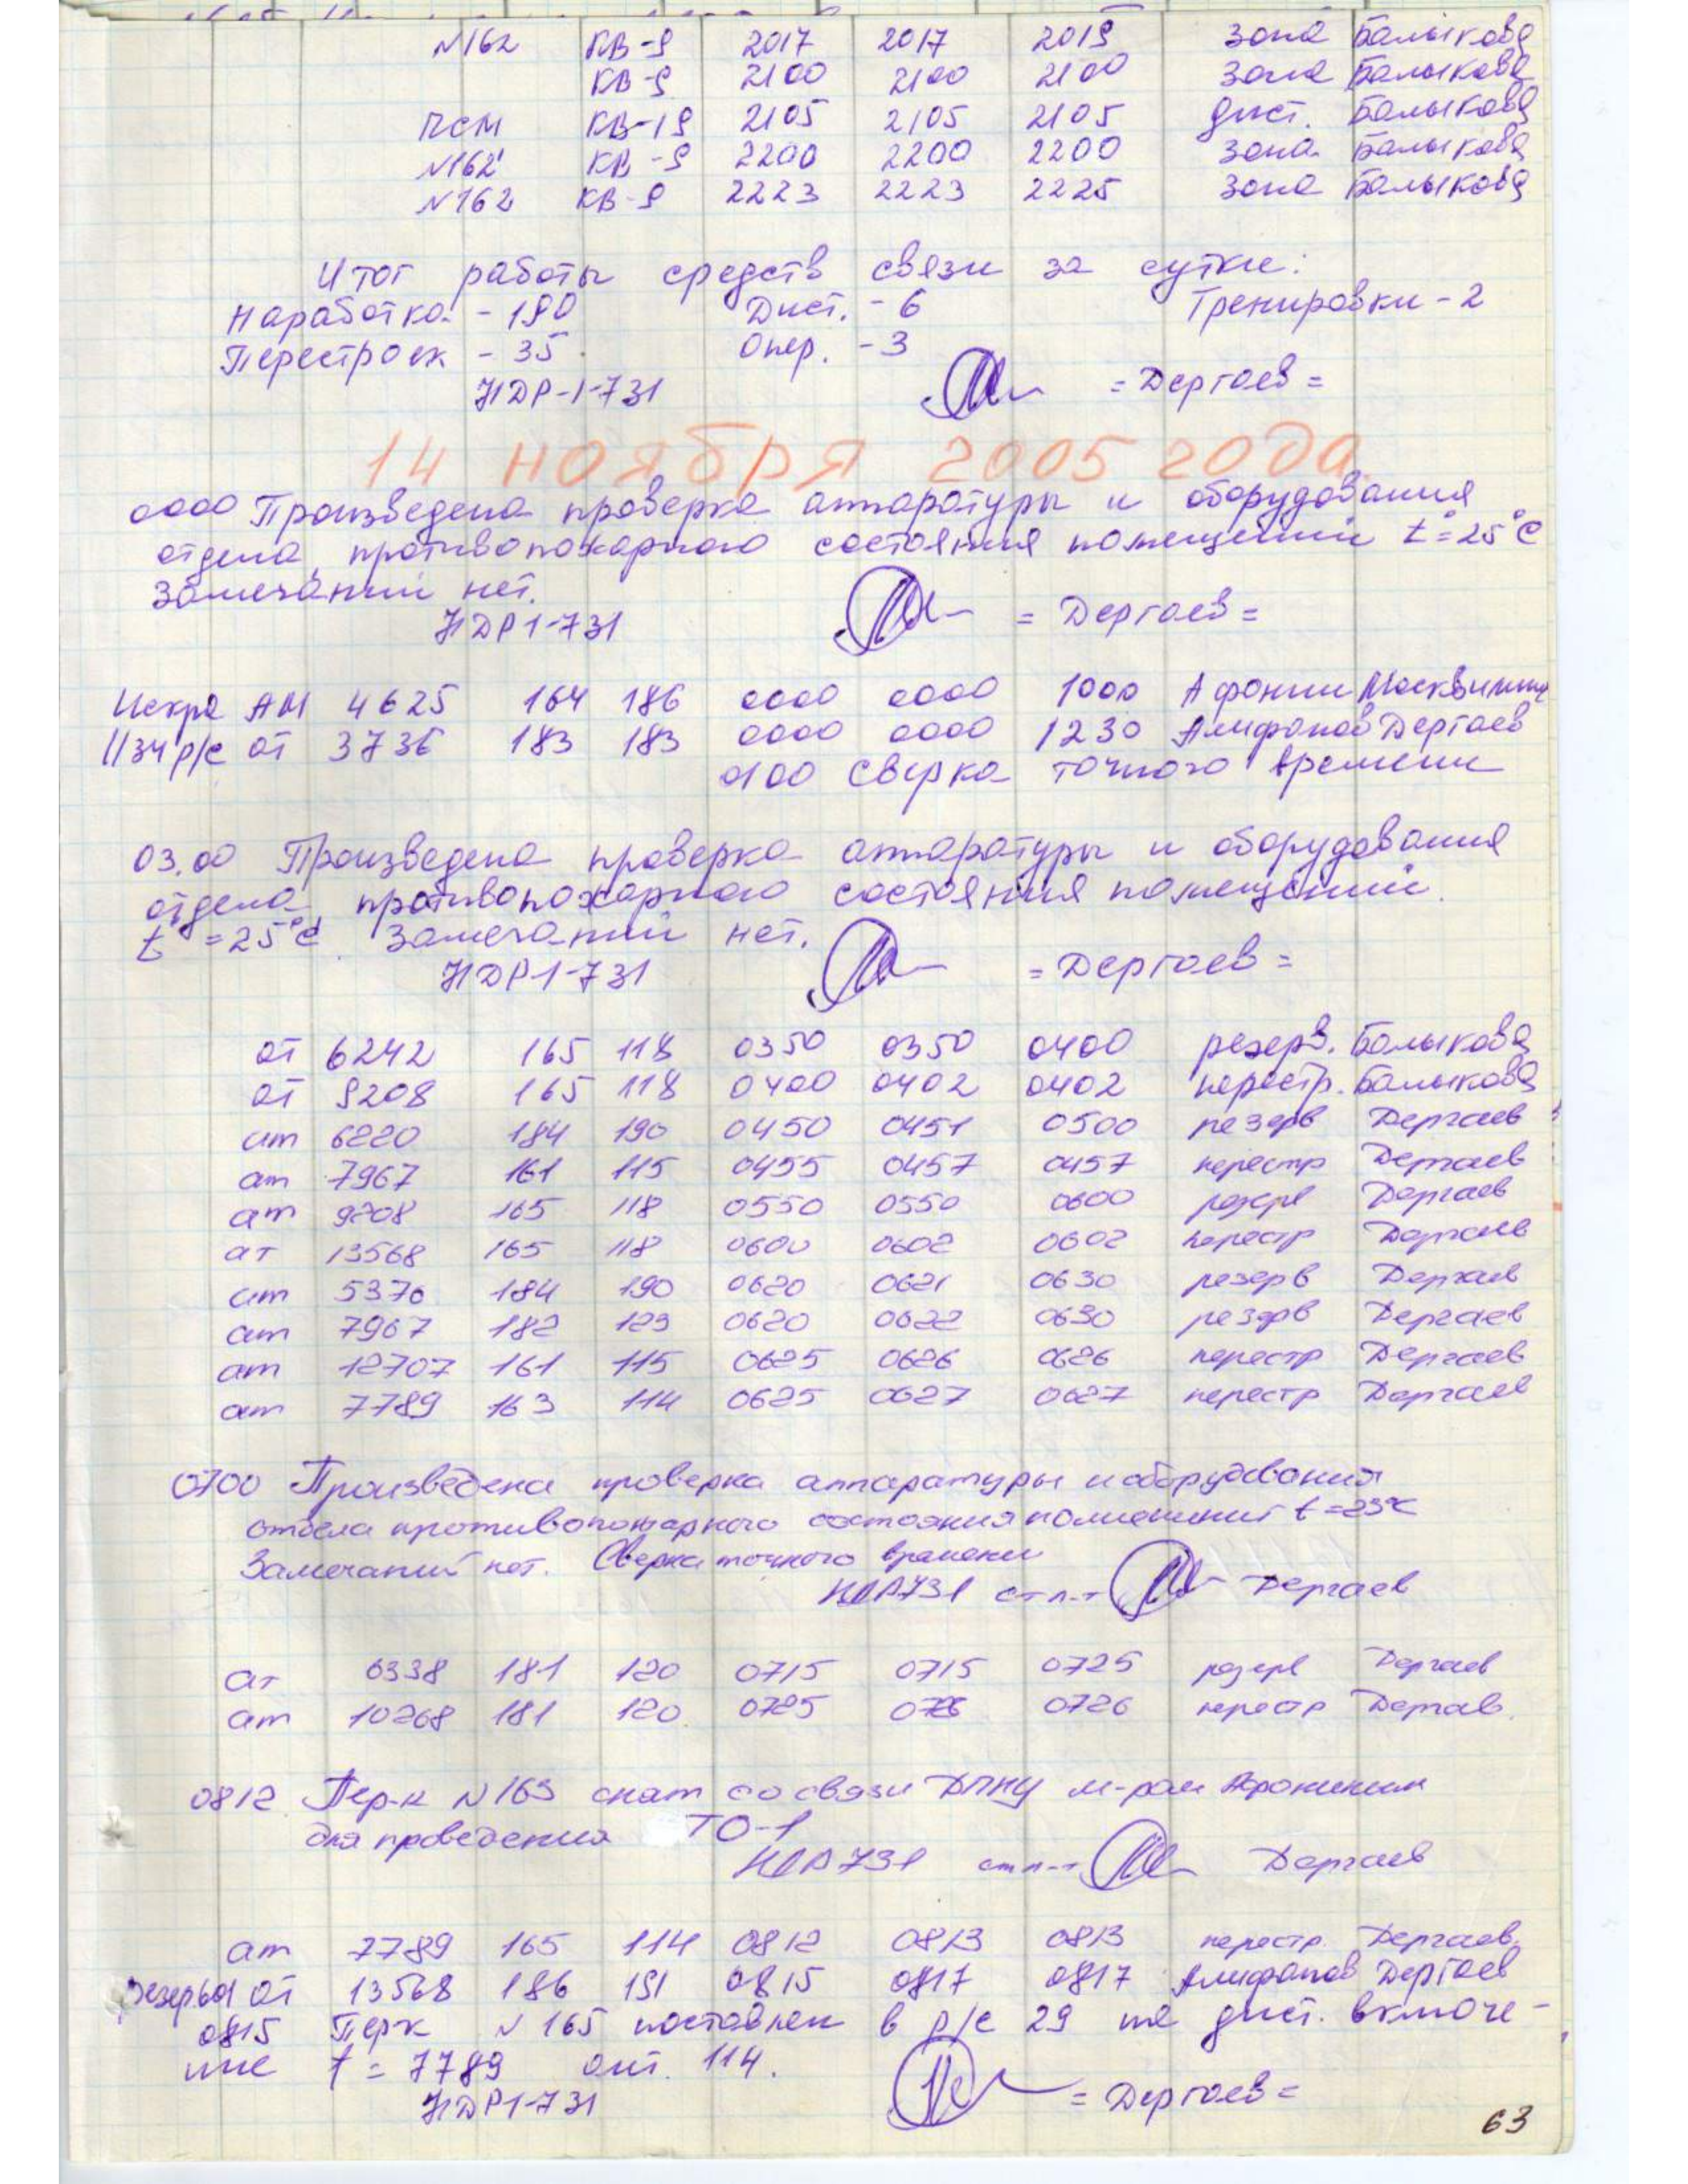 N162 КВ-9 2017 2017 2019 зона Балыкова
КВ-9 2100 2100 2100 зона Балыкова
ПСМ КВ-19 2105 2105 2105 дист. Балыкова
N162 КВ-9 2200 2200 2200 зона Балыкова
N162 КВ-9 2223 2223 2225 зона Балыкова
Итог работы средств связи за сутки:
Наработка - 190 Дист. - 6 Тренировки - 2
Перестроек - 35 Опер. - 3
НДР-1-731 = Дергаев =
14 ноября 2005 года
0000 Произведена проверка аппаратуры и оборудования
отдела, противопожарного состояния помещений t°=25°С
Замечаний нет.
НДР1-731 = Дергаев =
Искра АМ 4625 164 186 0000 0000 1000 Афонин Москвитин
ПЗЧ р/с от 3736 183 183 0000 0000 1230 Алифанов Дергаев
0100 сверка точного времени
03.00 Произведена проверка аппаратуры и оборудования
отдела, противопожарного состояния помещений.
t°=25°С. Замечаний нет.
НДР1-731 = Дергаев =
от 6242 165 118 0350 0350 0400 резерв. Балыкова
от 9208 165 118 0400 0402 0402 перестр. Балыкова
от 6220 184 190 0450 0451 0500 резерв Дергаев
от 7967 161 115 0455 0457 0457 перестр Дергаев
от 9208 165 118 0550 0550 0600 резерв Дергаев
от 13568 165 118 0600 0602 0602 перестр Дергаев
от 5370 184 190 0620 0621 0630 резерв Дергаев
от 7967 182 123 0620 0622 0630 резерв Дергаев
от 12707 161 115 0625 0626 0626 перестр Дергаев
от 7789 163 114 0625 0627 0627 перестр Дергаев
0700 Произведена проверка аппаратуры и оборудования
отдела противопожарного состояния помещений t=23°С
Замечаний нет. Сверка точного времени
НДР731 ст п-т Дергаев
от 6338 181 120 0715 0715 0725 резерв Дергаев
от 10268 181 120 0725 0726 0726 перестр Дергаев.
0812 Пер-к N163 снят со связи ДПНУ м-ром Афониным
для проведения ТО-1
НДР731 ст п-т Дергаев
от 7789 165 114 0812 0813 0813 перестр. Дергаев.
резервы от 13568 186 191 0815 0817 0817 Алифанов Дергаев
0815 Перк N165 поставлен в р/с 29 на дист. включе-
ние f = 7789 ант. 114.
НДР1-731 = Дергаев =
63